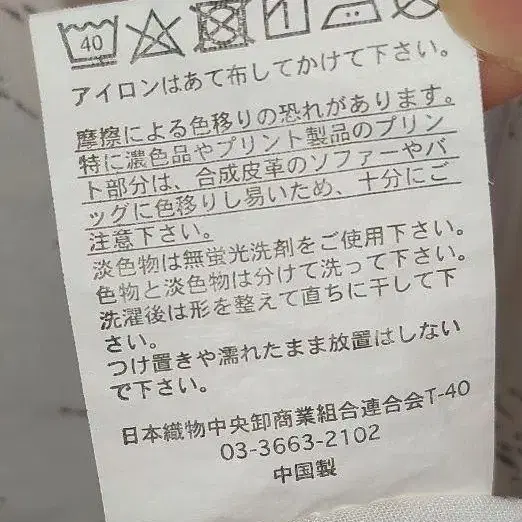 40
アイロンはあて布してかけて下さい。
摩擦による色移りの恐れがあります。
特に濃色品やプリント製品のプリン
ト部分は、合成皮革のソファーやバ
ッグに色移りし易いため、十分にご
注意下さい。
淡色物は無蛍光洗剤をご使用下さい。
色物と淡色物は分けて洗って下さい。
洗濯後は形を整えて直ちに干して下
さい。
つけ置きや濡れたまま放置はしない
で下さい。
日本織物中央卸商業組合連合会T-40
03-3663-2102
中国製